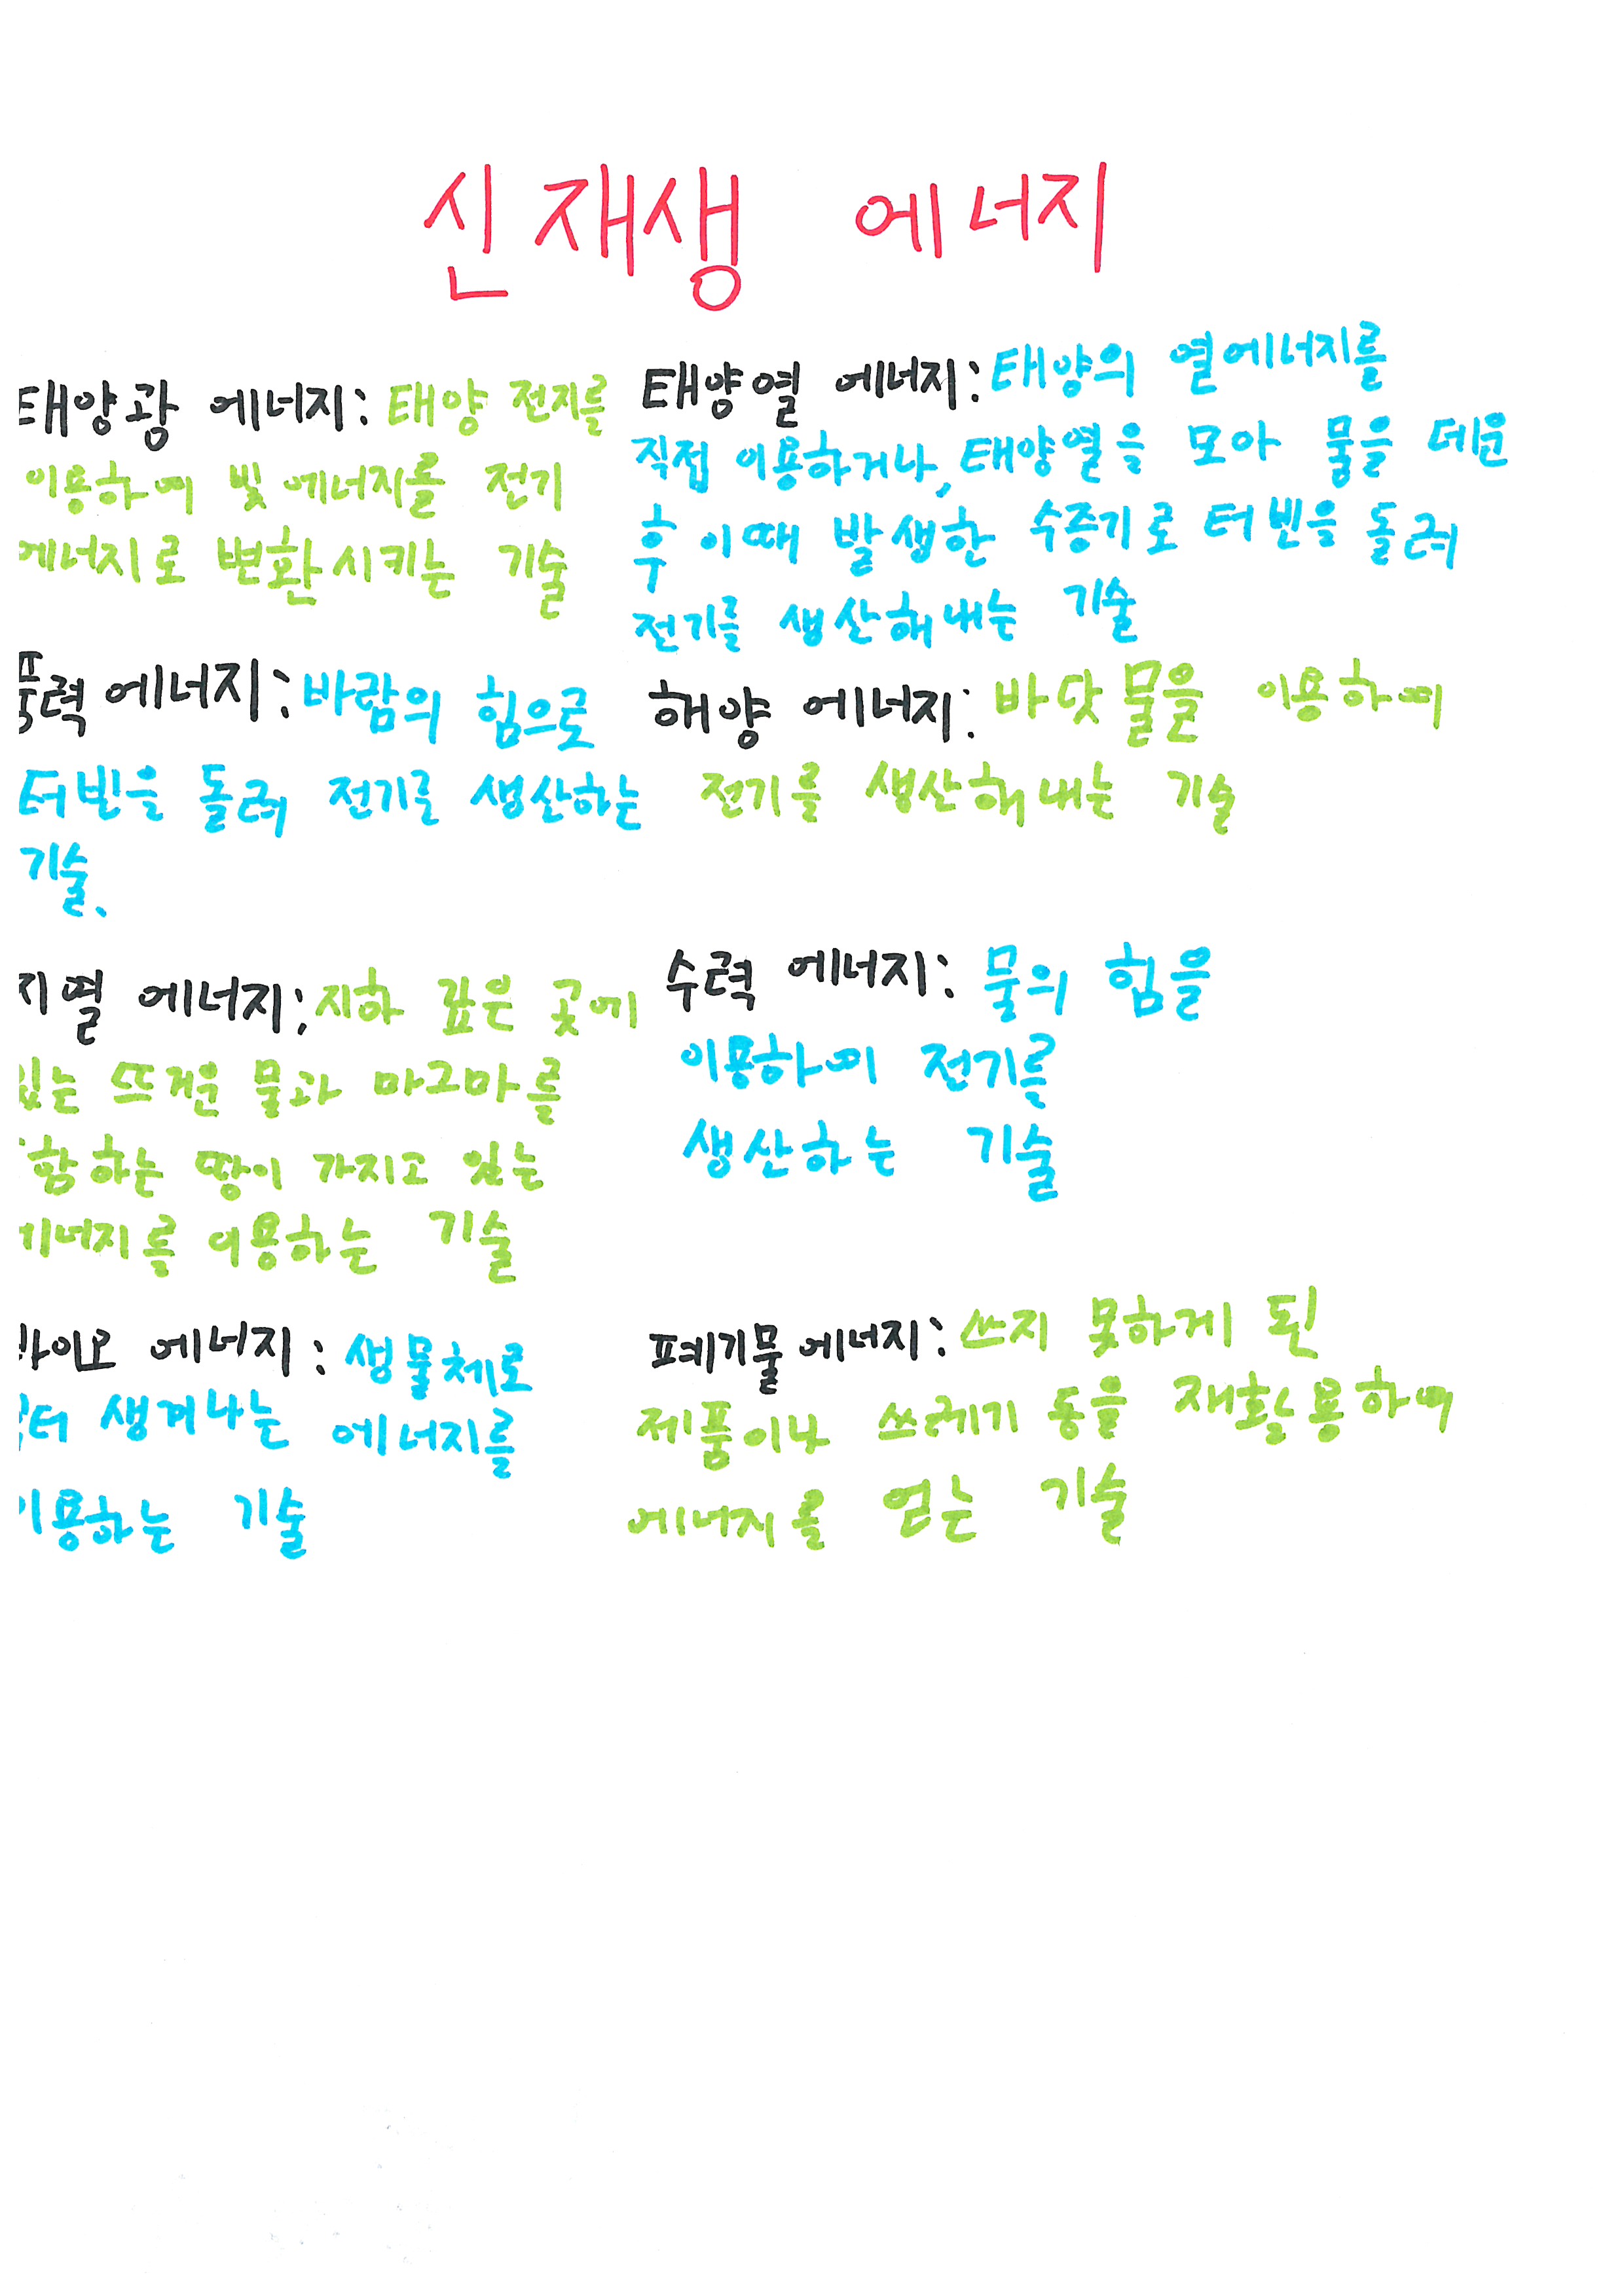 신재생 에너지
태양광 에너지: 태양 전지를
이용하여 빛 에너지를 전기
에너지로 변환시키는 기술
태양열 에너지: 태양의 열에너지를
직접 이용하거나, 태양열을 모아 물을 데운
후 이때 발생한 수증기로 터빈을 돌려
전기를 생산해내는 기술
풍력 에너지: 바람의 힘으로
터빈을 돌려 전기를 생산하는
기술.
해양 에너지: 바닷물을 이용하여
전기를 생산해내는 기술
지열 에너지: 지하 깊은 곳에
있는 뜨거운 물과 마그마를
함하는 땅이 가지고 있는
에너지를 이용하는 기술
수력 에너지: 물의 힘을
이용하여 전기를
생산하는 기술
바이오 에너지: 생물체로
터 생겨나는 에너지를
이용하는 기술
폐기물 에너지: 쓰지 못하게 된
제품이나 쓰레기 등을 재활용하여
에너지를 얻는 기술